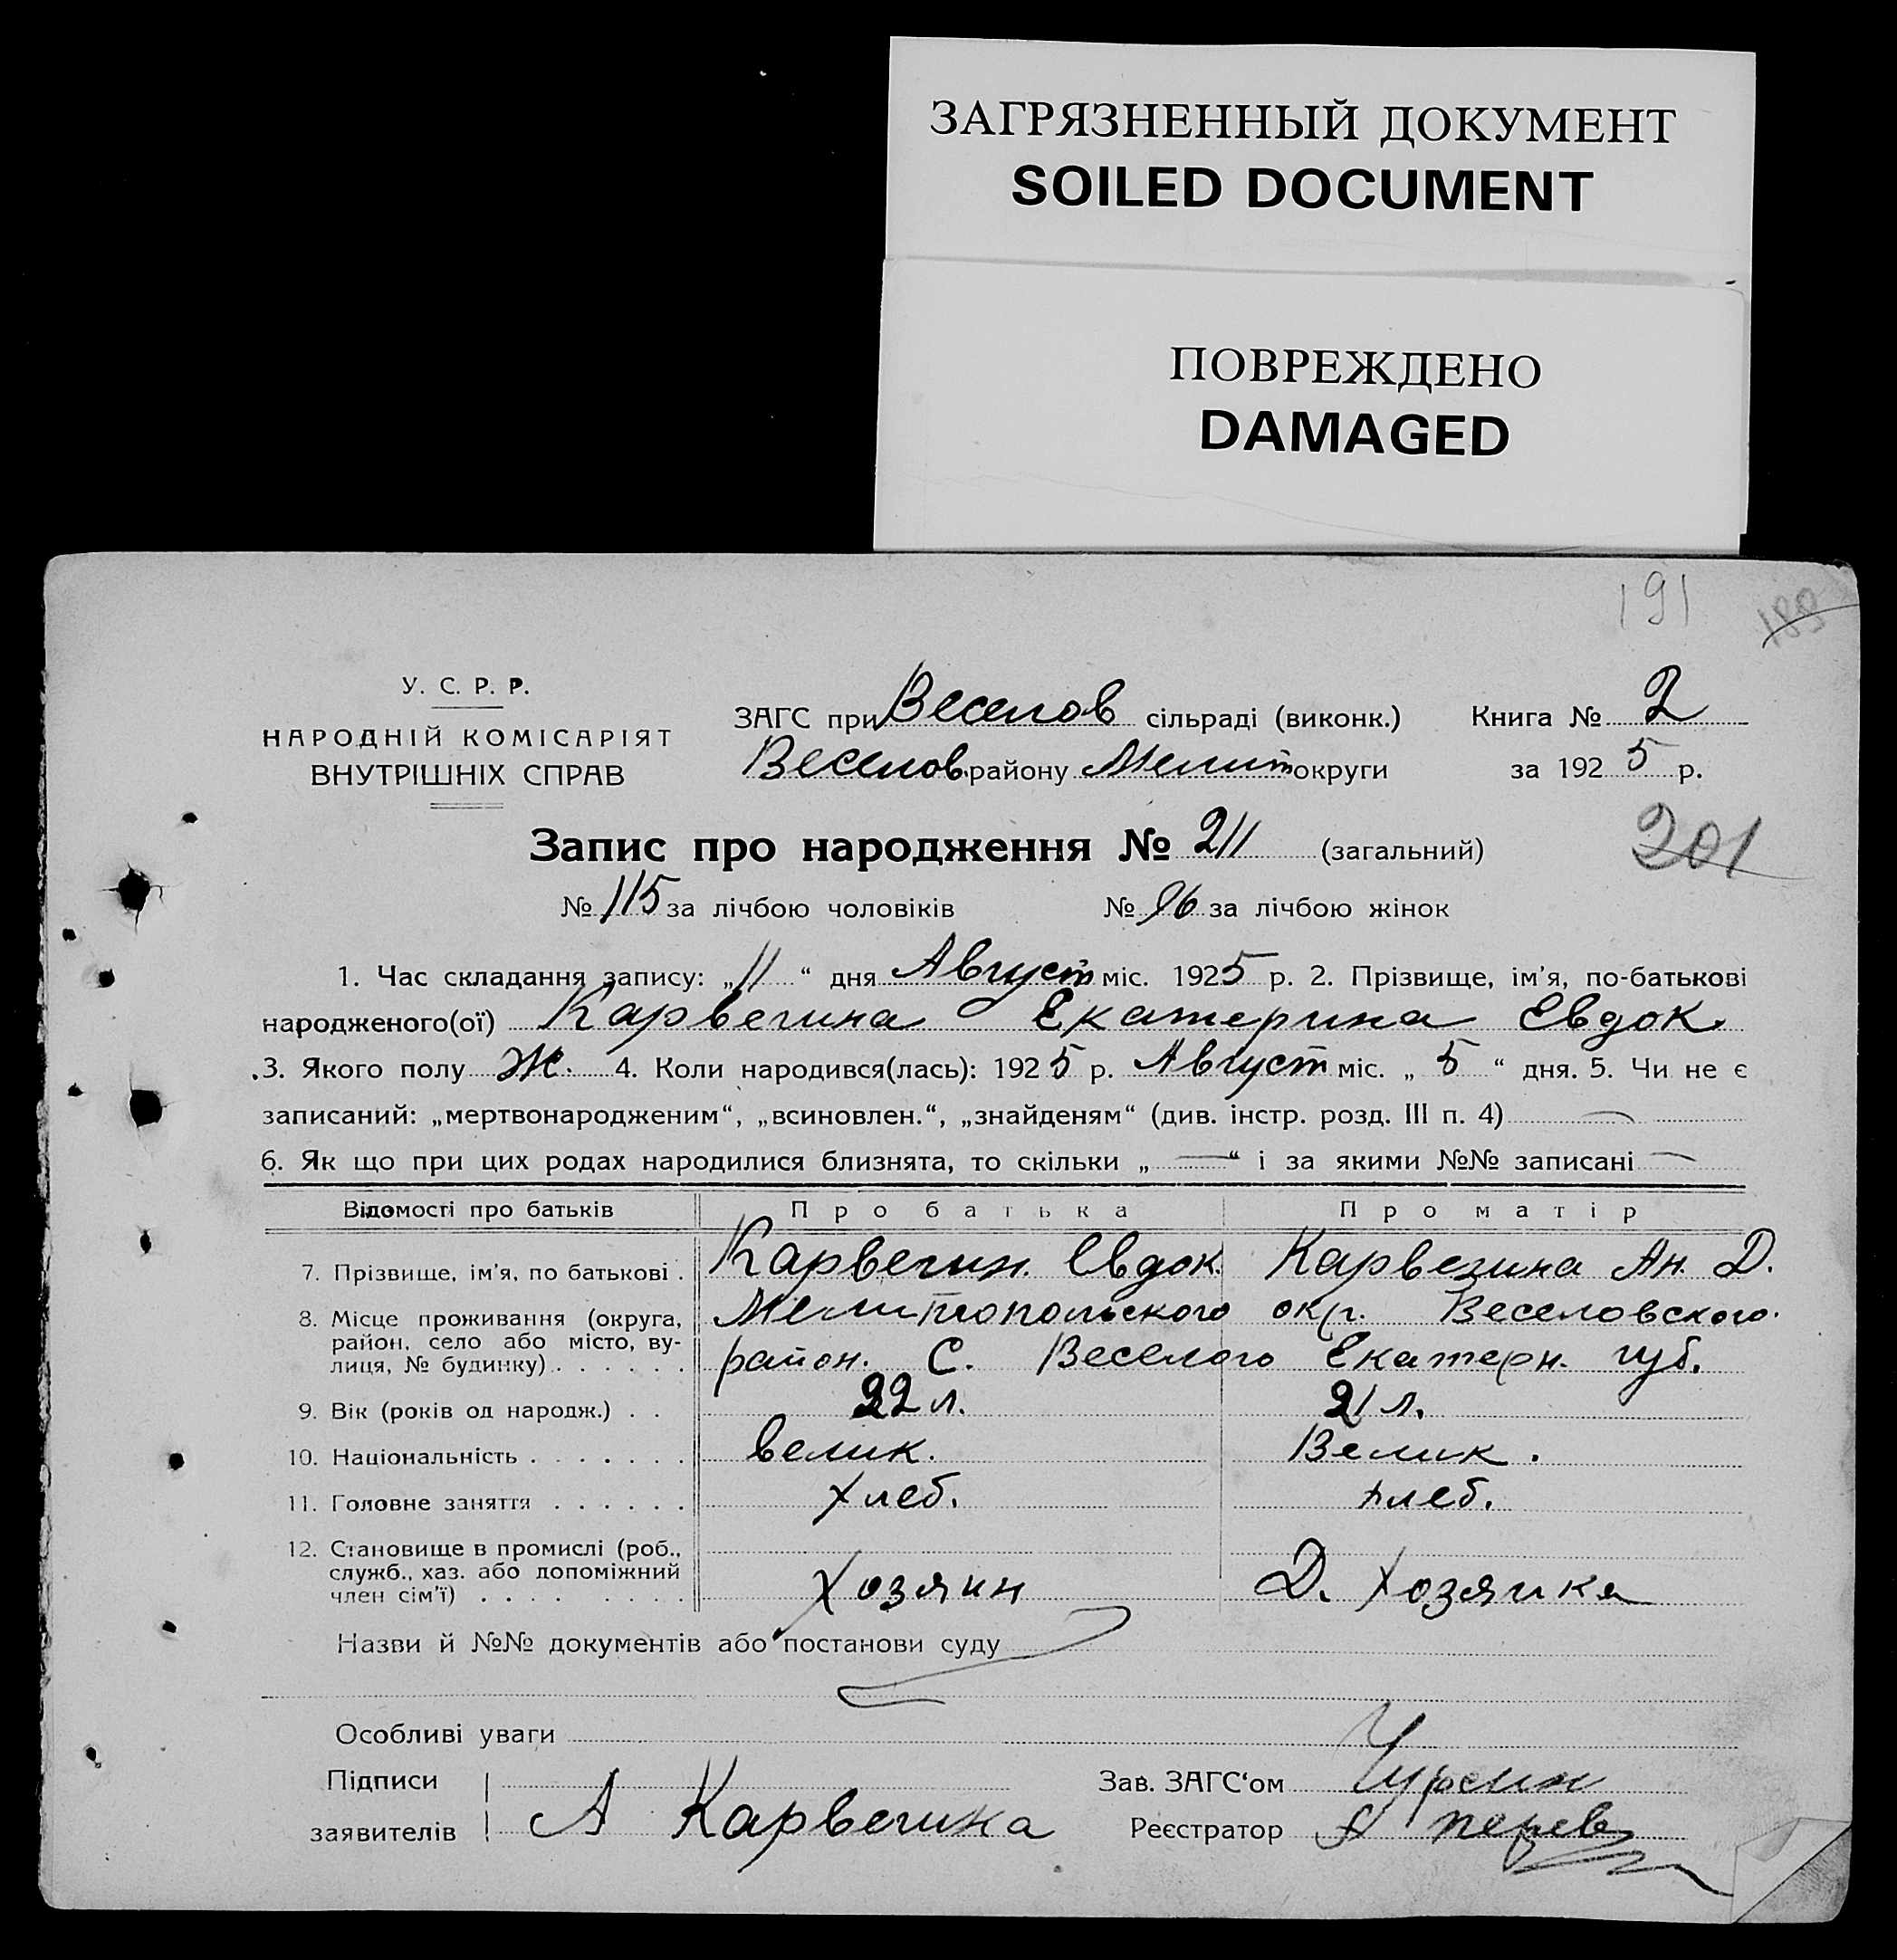 ЗАГРЯЗНЕННЫЙ ДОКУМЕНТ
SOILED DOCUMENT
ПОВРЕЖДЕНО
DAMAGED
191 188
У. С. Р. Р.
НАРОДНІЙ КОМІСАРІЯТ
ВНУТРІШНІХ СПРАВ
ЗАГС при Веселов сільраді (виконк.) Книга № 2
Веселов. району Мелит округи за 1925 р.
Запис про народження № 211 (загальний) 201
№ 115 за лічбою чоловіків № 96 за лічбою жінок
1. Час складання запису: „11“ дня Август міс. 1925 р. 2. Прізвище, ім'я, по-батькові
народженого(ої) Карвегина Екатерина Евдок.
3. Якого полу Ж. 4. Коли народився(лась): 1925 р. Август міс. „5“ дня. 5. Чи не є
записаний: „мертвонародженим“, „всиновлен.“, „знайденям“ (див. інстр. розд. III п. 4) —
6. Як що при цих родах народилися близнята, то скільки „—“ і за якими №№ записані —
Відомості про батьків Про батька Про матір
7. Прізвище, ім'я, по батькові . Карвегин. Евдок. Карвегина Ан. Д.
8. Місце проживання (округа, Мелитопольского окр. Веселовского.
район, село або місто, ву-
лиця, № будинку) . . . . . . район. С. Веселого Екатерн. губ.
9. Вік (років од народж.) . . 22 л. 21 л.
10. Національність . . . . . . . велик. Велик.
11. Головне заняття . . . . . . Хлеб. хлеб.
12. Становище в промислі (роб.,
служб., хаз. або допоміжний
член сім'ї) . . . . . . . . Хозяин Д. Хозяйка
Назви й №№ документів або постанови суду
Особливі уваги
Підписи Зав. ЗАГС'ом
заявителів А Карвегина Реєстратор